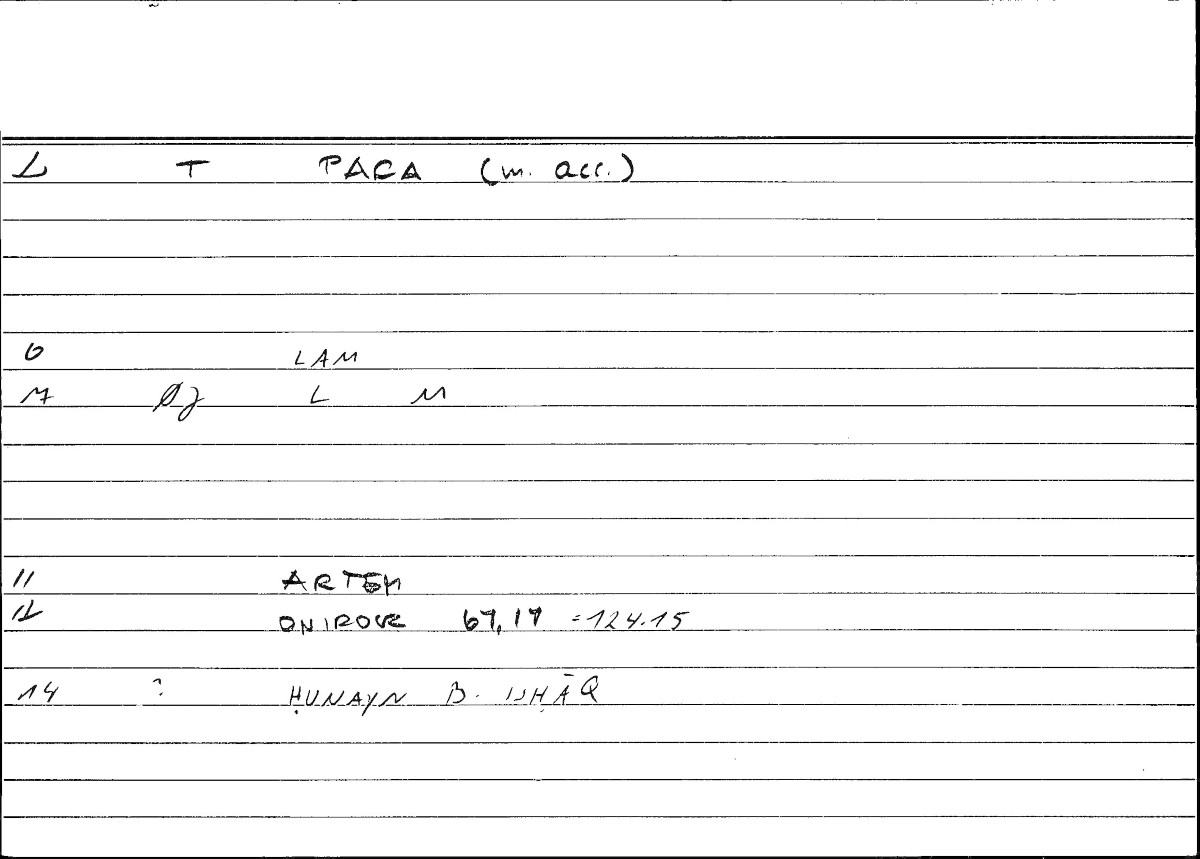 2 T PARA (m. acc.)
6 LAM
7 L M
11 ARTEM
12 ONIROCR 67,17 =124.15
14 ? ḤUNAYN B. ISḤĀQ